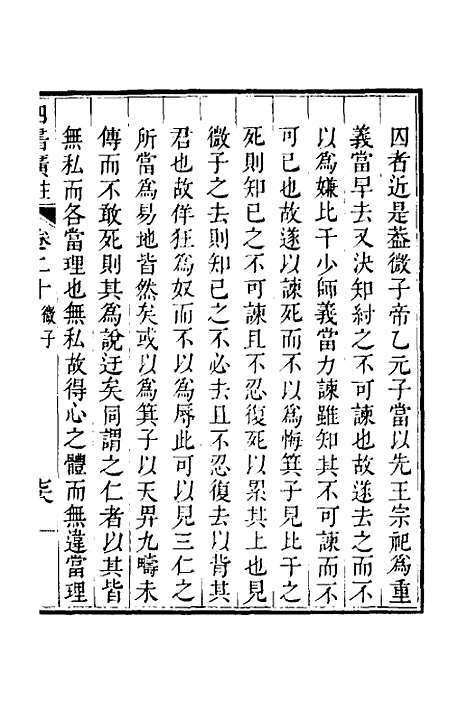 囚者近是葢微子帝乙元子當以先王宗祀為重
義當早去又決知紂之不可諫也故遂去之而不
以為嫌比干少師義當力諫雖知其不可諫而不
可已也故遂以諫死而不以為悔箕子見比干之
死則知已之不可諫且不忍復死以累其上也見
微子之去則知已之不必去且不忍復去以背其
君也故佯狂為奴而不以為辱此可以見三仁之
所當為易地皆然矣或以為箕子以天畀九疇未
傳而不敢死則其為說迂矣同謂之仁者以其皆
無私而各當理也無私故得心之體而無違當理
四書廣註 卷二十 微子